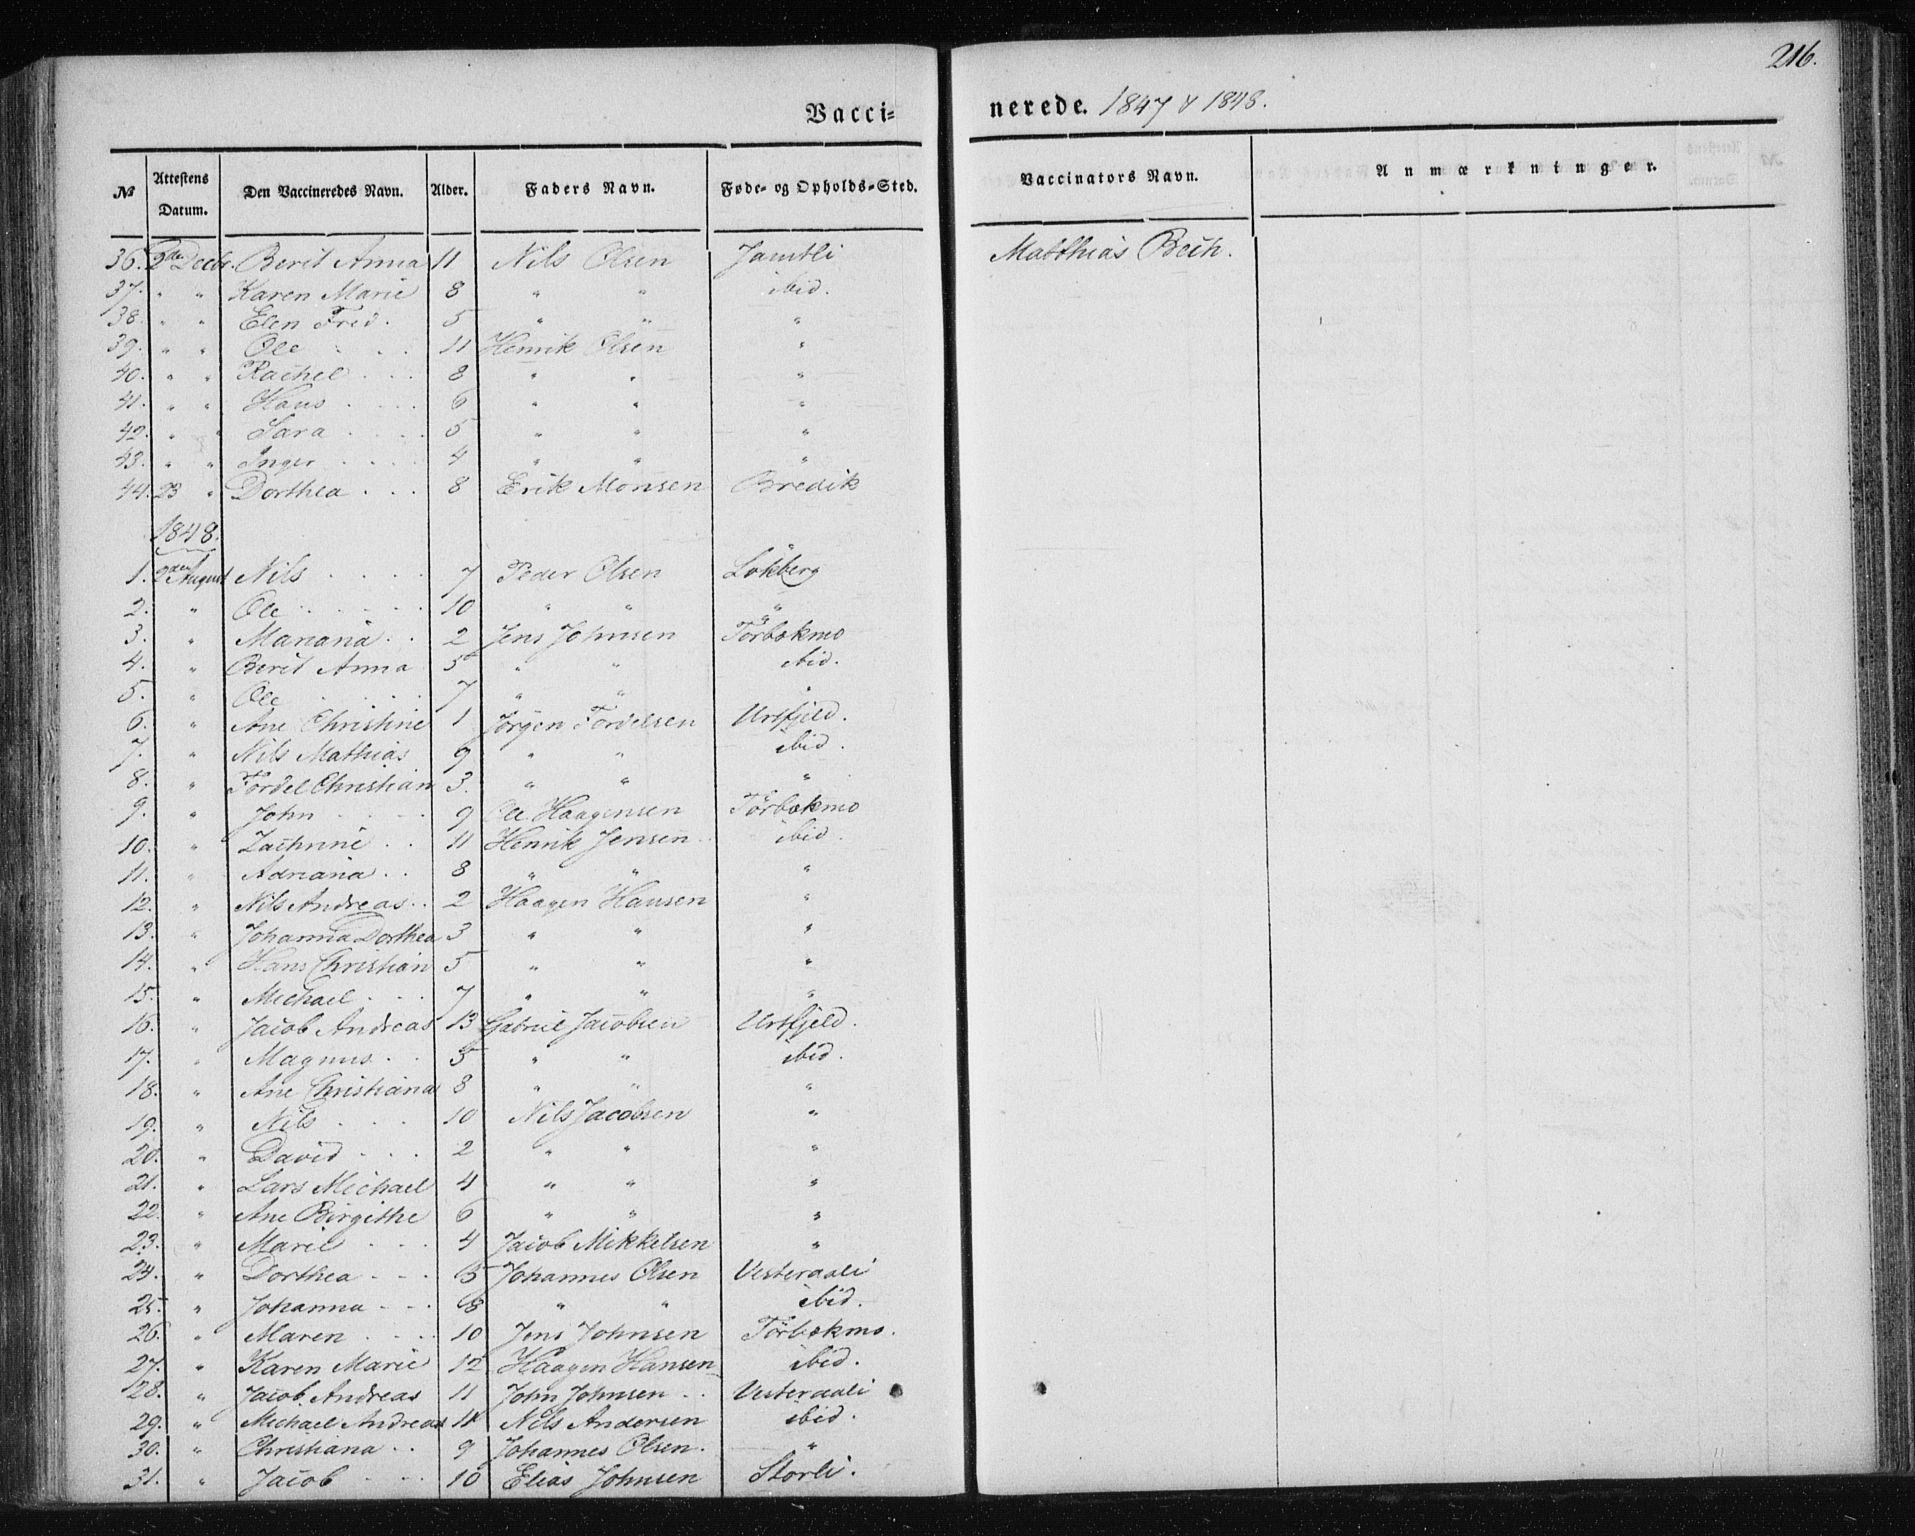 216.
Vacci- nerede. 1847 & 1848.
№ Attestens Datum. Den Vaccineredes Navn. Alder. Faders Navn. Føde- og Opholds-Sted. Vaccinators Navn. Anmærkninger.
36. 2den Decbr. Berit Anna 11 Nils Olsen Jamtli Matthias Bech.
37. " " Karen Marie 8 " " ibid.
38. " " Elen Fred. 5 " " "
39. " " Ole 11 Henrik Olsen "
40. " " Rachel 8 " " "
41. " " Hans 6 " " "
42. " " Sara 5 " " "
43. " " Inger 4 " " "
44. 23 " Dorthea 8 Erik Monsen Bredik
1848.
1. 2den August Nils 7 Peder Olsen Lökberg
2. " Ole 10 " " "
3. " Mariana 2 Jens Johnsen Törbakmo
4. " Berit Anna 5 " " ibid.
5. " Ole 7 " " "
6. " Ane Christine 1 Jörgen Tordelsen Urtfjeld.
7. " Nils Mathias 9 " " ibid.
8. " Tordel Christian 3. " " "
9. " John 9 Ole Haagensen Törbakmo
10. " Zachrine 11 Henrik Jensen ibid.
11. " Adriana 8 " " "
12. " Nils Andreas 2 Haagen Hansen "
13. " Johanna Dorthea 3 " " "
14. " Hans Christian 5 " " "
15. " Michael 7 " " "
16. " Jacob Andreas 13 Gabriel Jacobsen Urtfjeld.
17. " Magnus 5 " " ibid.
18. " Ane Christiana 8 " " "
19. " Nils 10 Nils Jacobsen "
20. " David 2 " " "
21. " Lars Michael 4 " " "
22. " Ane Birgithe 6 " " "
23. " Marie 4 Jacob Mikkelsen "
24. " Dorthea 5 Johannes Olsen Vesteraali
25. " Johanna 8 " " ibid.
26. " Maren 10 Jens Johnsen Törbakmo.
27. " Karen Marie 12 Haagen Hansen ibid.
28. " Jacob Andreas 11 John Johnsen Vesteraali
29. " Michael Andreas 11 Nils Andersen ibid.
30. " Christiana 9 Johannes Olsen. "
31. " Jacob 10 Elias Johnsen Storli.